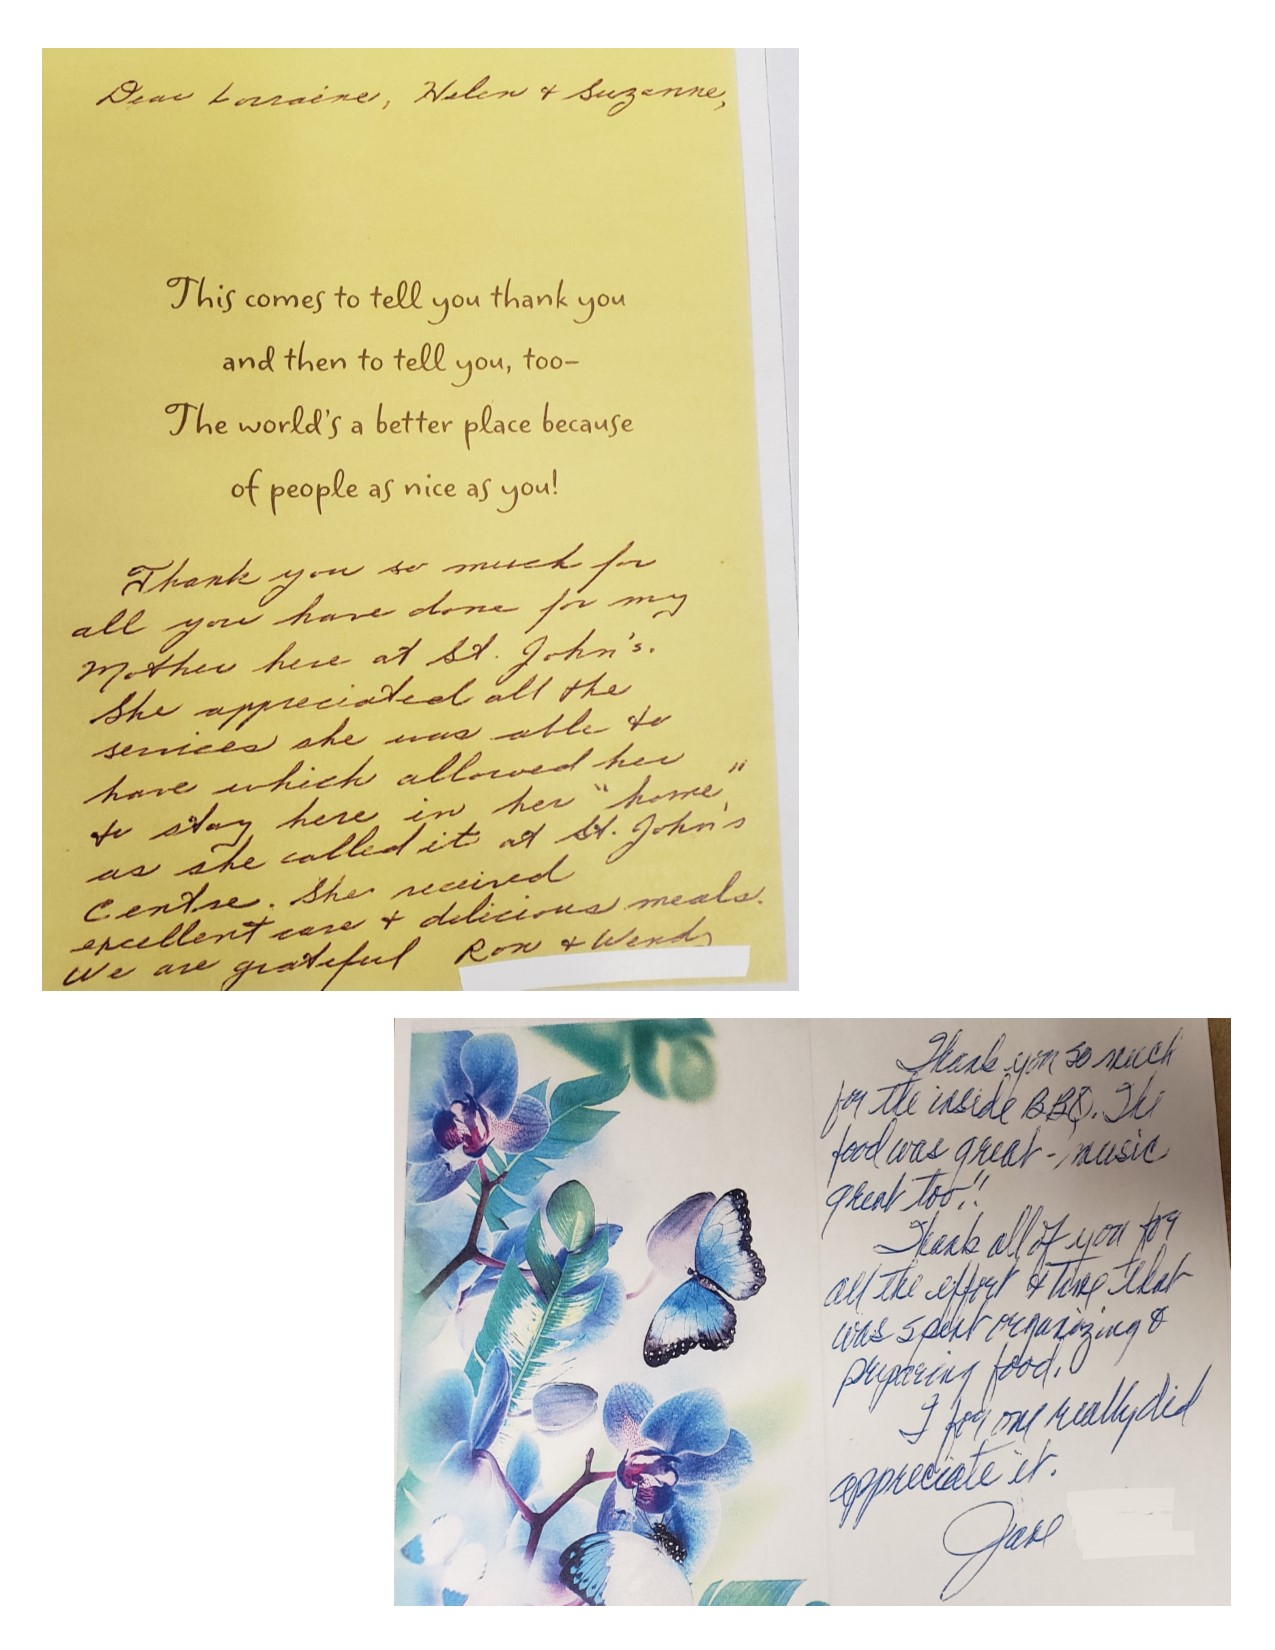 Dear Lorraine, Helen & Suzanne,
This comes to tell you thank you
and then to tell you, too—
The world's a better place because
of people as nice as you!
Thank you so much for
all you have done for my
Mother here at St. John's.
She appreciated all the
services she was able to
have which allowed her
to stay here in her "home"
as she called it at St. John's
Centre. She received
excellent care & delicious meals.
We are grateful Ron & Wendy
Thank you so much
for the inside BBQ. The
food was great - music
great too!!
Thank all of you for
all the effort & time that
was spent organizing &
preparing food.
I for one really did
appreciate it.
Jane